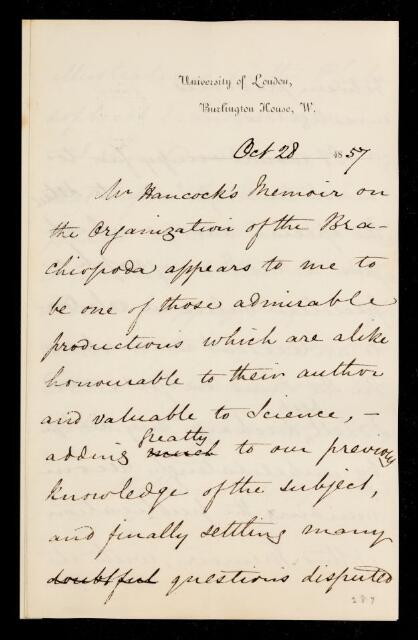 University of London,
Burlington House, W.
Oct 28 1857
Mr Hancock's Memoir on
the Organization of the Bra-
chiopoda appears to me to
be one of those admirable
productions which are alike
honourable to their author
and valuable to Science, –
adding much greatly to our previous
knowledge of the subject,
and finally settling many
doubtful questions disputed
287